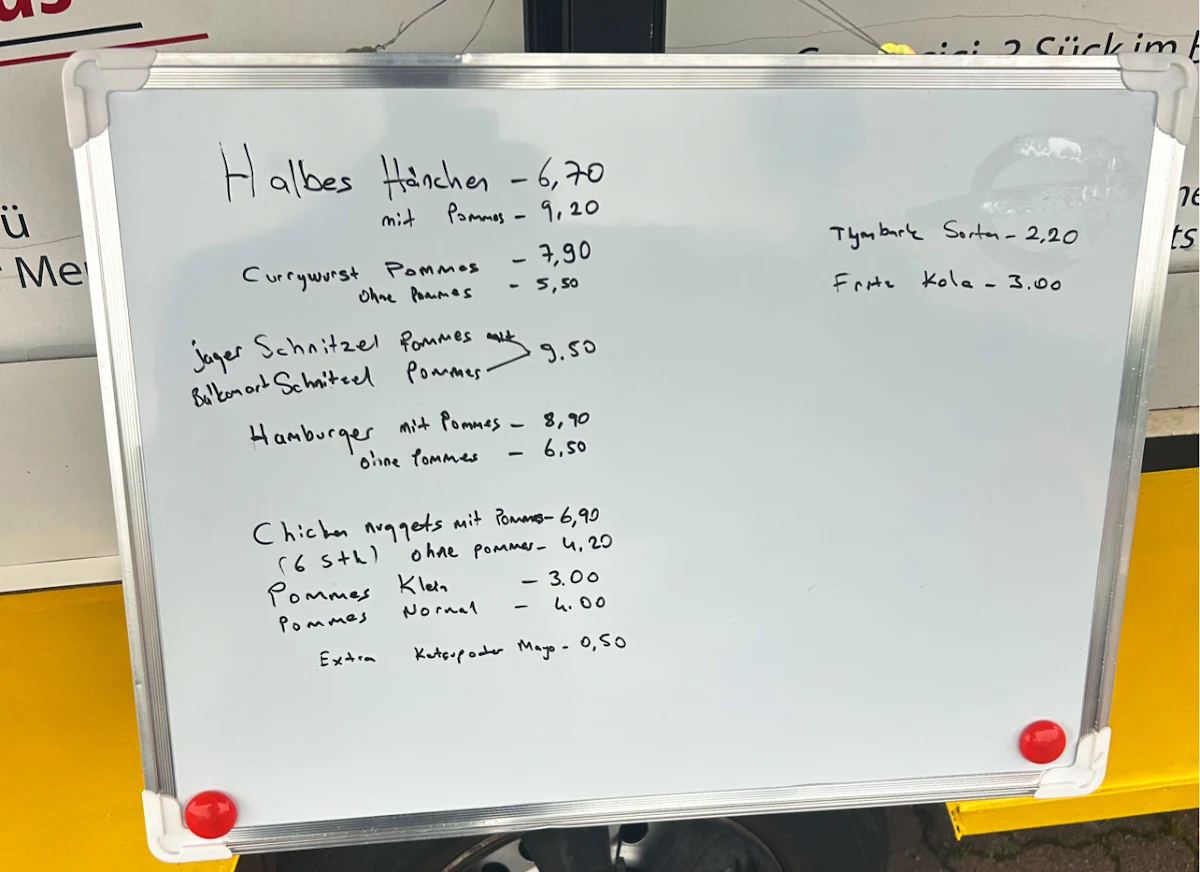 Sück im
ü
Me
Halbes Hänchen - 6,70
mit Pommes - 9,20
Currywurst Pommes - 7,90
ohne Pommes - 5,50
jager Schnitzel Pommes
Balkanart Schnitzel Pommes 9.50
Hamburger mit Pommes - 8,90
ohne Pommes - 6,50
Chicken nuggets mit Pommes - 6,90
(6 Stk) ohne pommes - 4,20
Pommes Klein - 3.00
Pommes Normal - 4.00
Extra Ketçup oder Mayo - 0,50
Tymbark Sorten - 2,20
Fritz Kola - 3.00